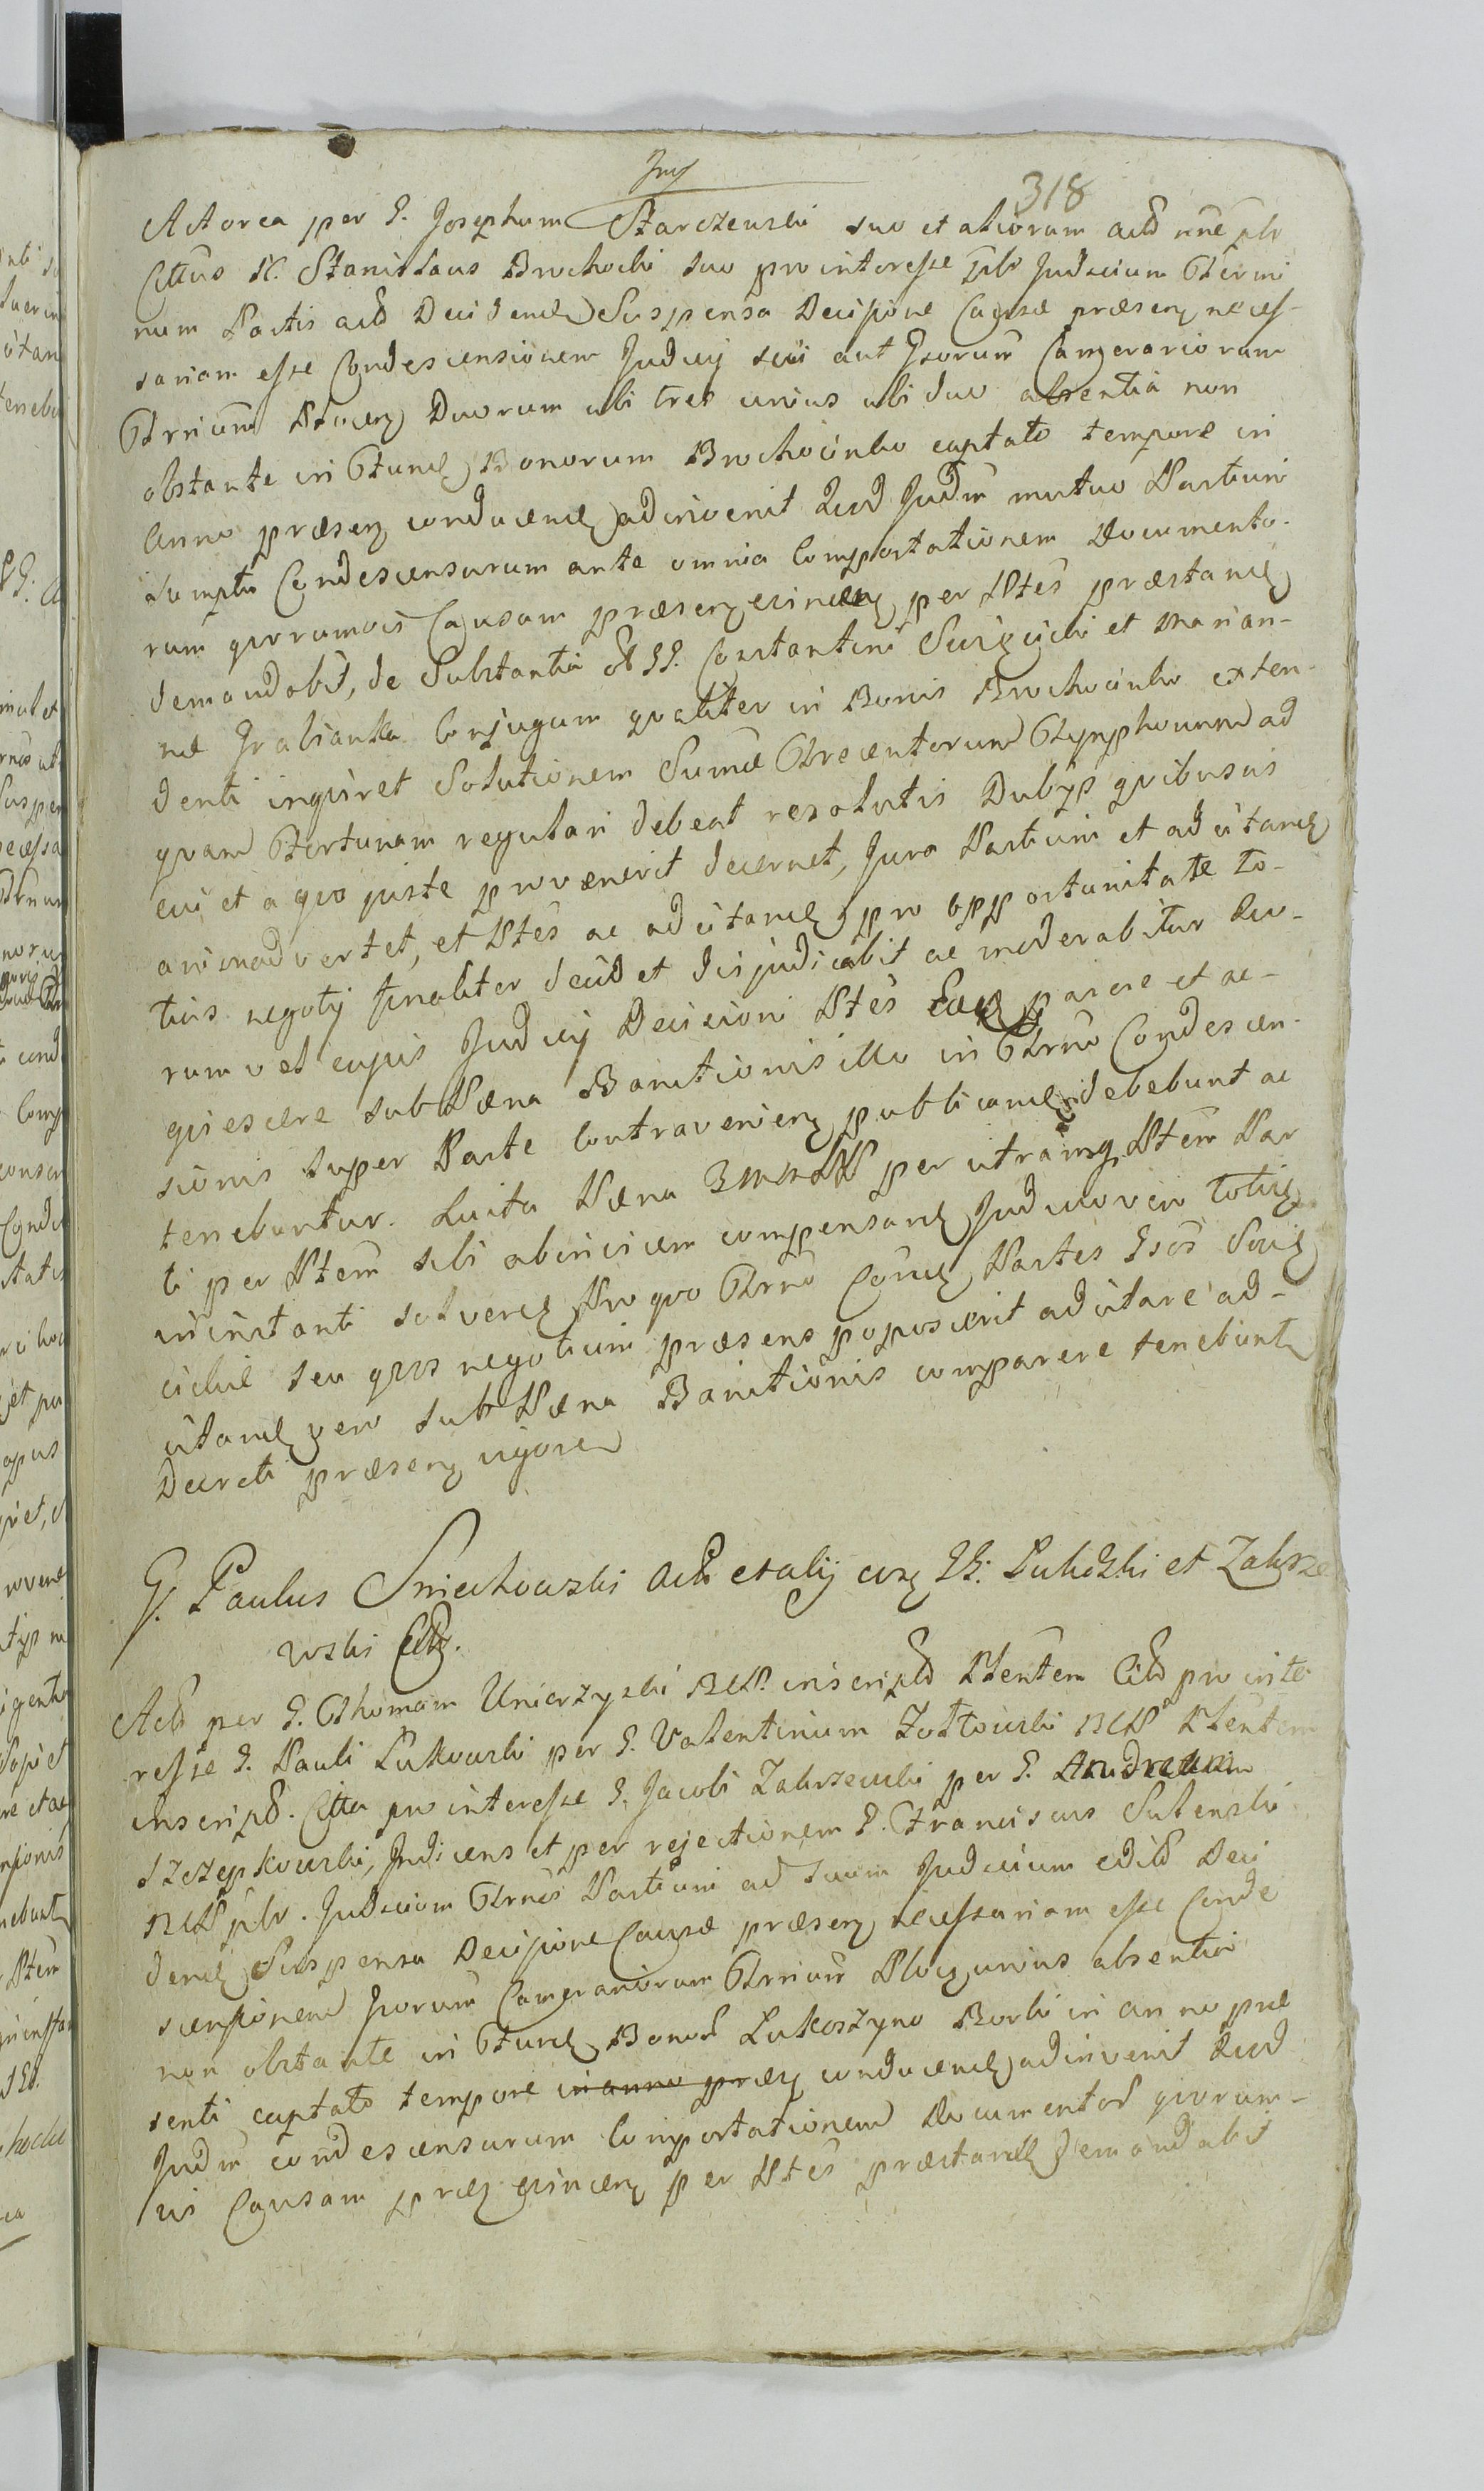 318
Actorea per G. Josephum Starczewski suo et aliorum actd nne plr
Cittus M. Stanislaus Brochocki suo pro interesse plr Judicium Termi
num Partis actd Decidend Suspensa Decisione Causæ præsen neces-
sariam esse Condescensionem Judicij sui aut Gsorum Camerariorum
Trrium Plocen Duorum ubi tres unius ubi duo absentia non
obstante in Fund Bonorum Brochocinko captato tempore in
Anno præsen conducend adinvenit Quod Judm mutuo Partium
sumptu Condescensurum ante omnia Comportationem Documento-
rum quorumvis Causam præsen concern per Ptes præstand
demandabit, de Substantia GG. Constantini Swięcicki et Marian-
næ Grabianka Conjugum qualiter in Bonis Brochocinko exten-
denti inquiret Solutionem Sumæ Trecentorum Tymphorum ad
quam Fortunam regulari debeat resolutis Dubÿs quibusvis
cui et a quo juste provenerit decernet, Jura Partium et adcitand
animadvertet, et Ptes ac adcitand pro opportunitate to-
tius negotij finaliter decid et disjudicabit ac moderabitur quo-
rum vel cujus Judicij Decisioni Ptes parere et ac-
quiescere sub Pæna Banitionis illo in Trmo Condescen-
sionis super Parte Contravenien publicand debebunt ac
tenebuntur. Luita Pæna 3MMPP per utramq Ptem Par
ti per Ptem sibi abinvicem compensand Judicio vero toties
in instanti solvend Pro quo Trmo Partes Gsos Swię
cickie seu quos negotium præsens poposcerit adcitare ad-
citand vero sub Pæna Banitionis comparere tenebunt
Decreti præsen vigore
G. Paulus Sniechowski Actr et alij cum GG. Lukoski et Zakrze
wski Citt.
Actd per G. Thomam Unierzyski NCP. inscripd Ptentem Citd pro inte
resse G. Pauli Lukowski per G. Valentinum Zołtowski NCP Ptentem
inscripd. Citta pro interesse G. Jacobi Zakrzewski per G. Andream
Szczepkowski, Judiciens et per rejectionem G. Franciscus Sulenski
NCP plr. Judicium Trnos Partium ad suum Judicium edid Deci
dend Suspensa Decisione Causæ præsen necessariam esse Conde
scensionem Gsorum Camerariorum Trrium Plocen unius absentia
non obstante in Fund Bonor Lukoszyno Borki in anno præ
senti captato tempore in anno præsn conducend adinvenit Quod
Judm condescensurum Comportationem Documentor quorum-
vis Causam præs concern per Ptes præstand demandabit